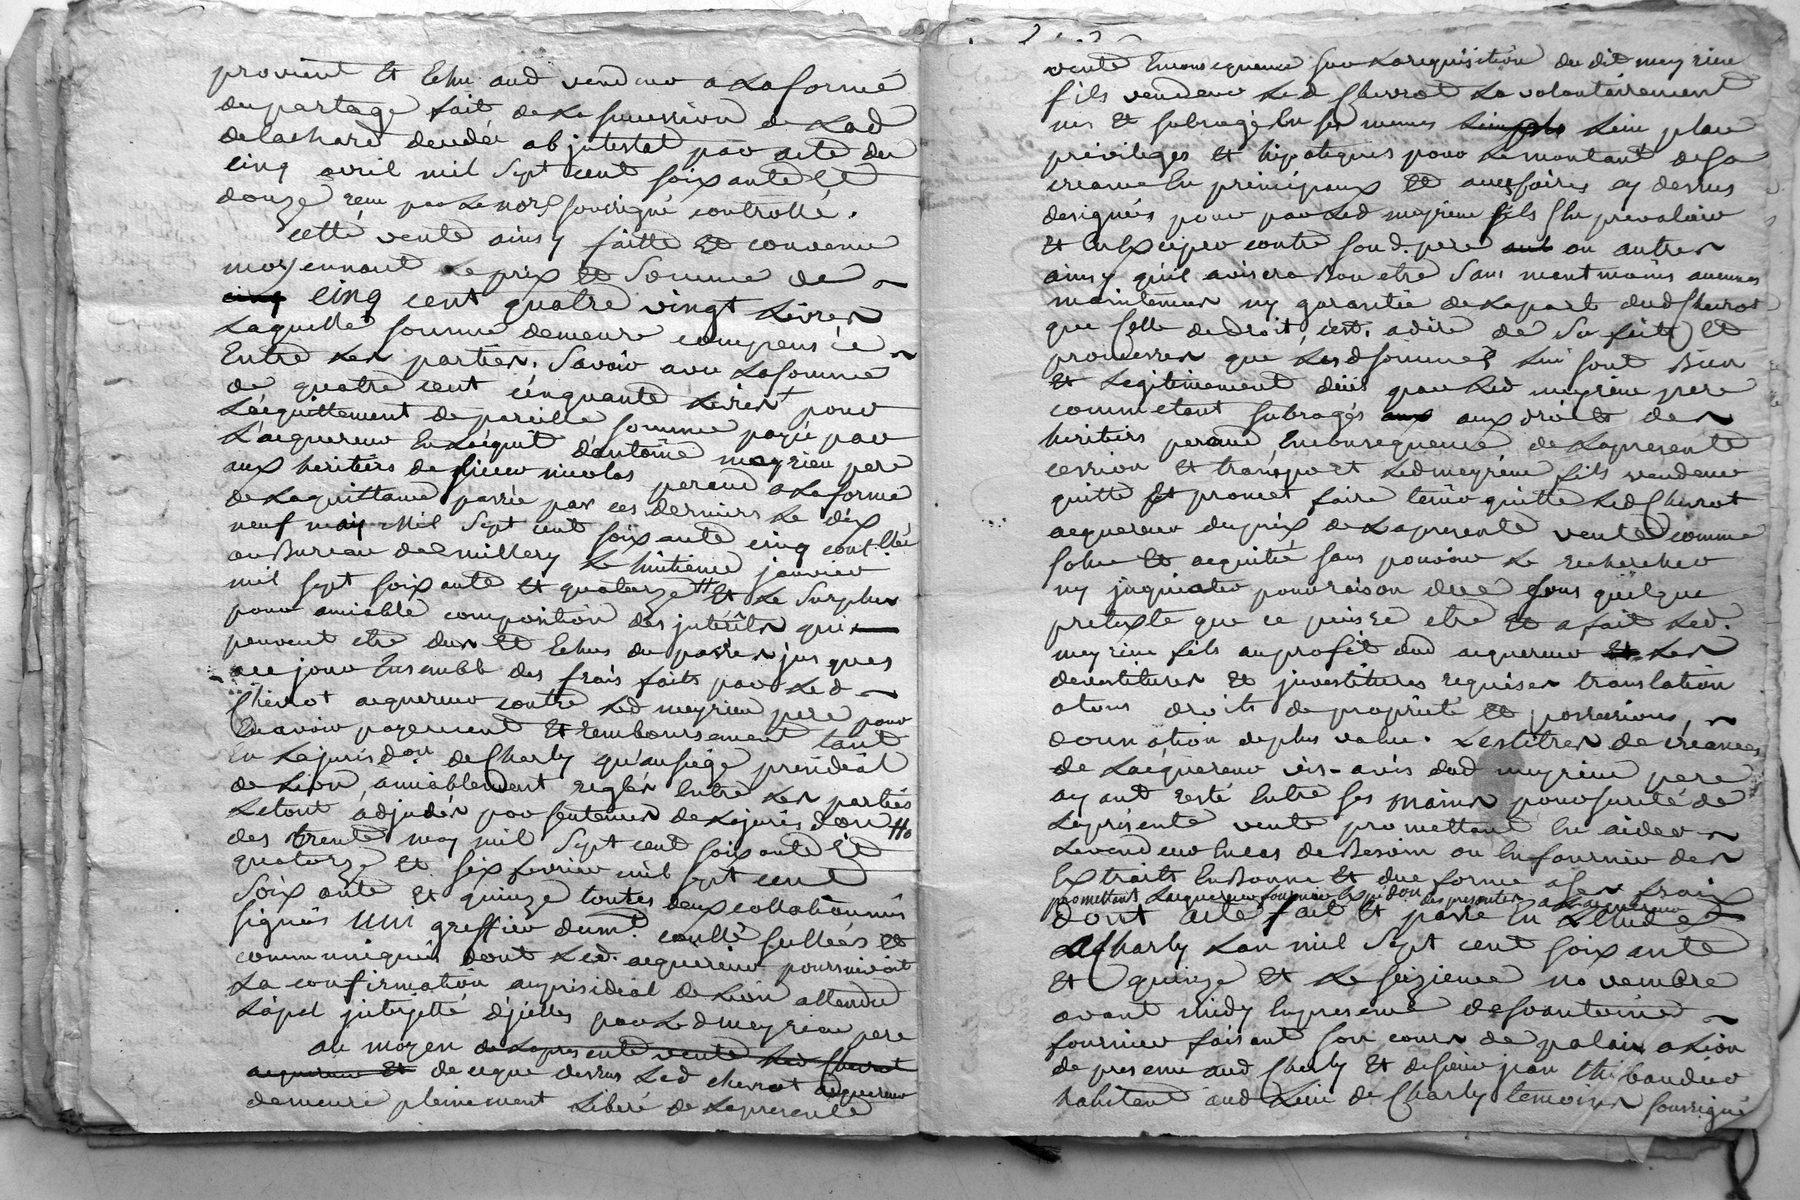 provient et Echu aud vendeur a La forme
du partage fait de La succession de Lad
delachard decedée abjntestat par acte du
cinq avril mil sept cent soixante et
douze recu par Le nore soussigné controllé.
cette vente ainsy faitte et convenue
moyennant Le prix et Somme de
cinq cinq cent quatre vingt Livres
Laquelle somme demeure compensée
Entre Les parties. Savoir avec La somme
de quatre cent cinquante Livres pour
L'acquittement de pareille somme payée par
L'acquereur En L'acquit d'antoine meyrieu pere
aux heritiers de sieur nicolas peraud a La forme
de La quittance passée par ces derniers Le dix
neuf may Mil sept cent soixante cinq contllée
au Bureau de millery Le huitieme janvier
mil sept soixante et quatorze et Le Surplus
pour amiable composition des jnterêts qui
peuvent etre dus et Echus du passé jusques
a ce jour Ensemble des frais faits par Led
Chevrot acquereur contre Led meyrieu pere pour
En avoir payement et remboursement tant
En La jurisdon de Charly qu'au siege presidial
de Lion amiablement reglés Entre Les parties
Letout adjugés par sentences de La jurisdon
des trente may mil sept cent soixante et
quatorze et six fevrier mil sept cent
soixante et quinze toutes deux collationnés
signés greffier dumt. scellées et
communiqués dont Led. acquereur poursuivoit
La confirmation au presidial de Lion attendu
L'apel jnterjetté d'jcelles par Led meyrieu pere
au moyen de La presente vente Led Chevrot
acquereur et de ce que dessus Led chevrot acquereur
demeure pleinement Liberé de La presente
vente En consequence sur La requisition du dit meyrieu
fils vendeur Led Chevrot La volontairement
mis et subrogé En ses memes Lieu place
privileges et hipoteques pour Le montant de sa
creance En principaux et accessoires cy dessus
designés pour par Led meyrieu fils s'En prevaloir
et En Exciper contre soud. pere ou autres
ainsy qu'il avisera Bon etre sans neantmoins aucunes
maintenue ny garantie de La part dud Chevrot
que Celle de droit, c'est. a dire de son fait et
promesses que Lesd sommes Lui sont Bien
et Legitimement dües par Led meyrieu pere
comme etant subrogés aux aux droits des
heritiers peraud En consequence de La presente
cession et transport Led meyrieu fils vendeur
quitte et promet faire tenir quitte Led Chevrot
acquereur du prix de La presente vente comme
solue et acquitté sans pouvoir Le rechercher
ny jnquieter pour raison d'ice sous quelque
pretexte que ce puisse etre et a fait Led.
meyrieu fils au profit dud acquereur et Les
devestitures et jnvestitures requises translation
a tous droits de proprieté et possessions,
donnation de plus value. Les titres de creances
de L'acquereur vis-avis dud meyrieu pere
ayant resté Entre ses mains pour sureté de
La presente vente promettant En aider
Le vendeur En cas de Besoin ou En fournir des
Extraits En Bonne et due forme a ses frais
promettant L'acquereur fournir Expedon des presentes a
dont acte fait et passé En L'Etude
a Charly L'an mil sept cent soixante
et quinze et Le seizieme novembre
avant midy En presence de sr antoine
fournier faisant son cours de palais a Lion
de present aud Charly et de sieur jean thibaudier
habitant aud Lieu de Charly temoins soussignés